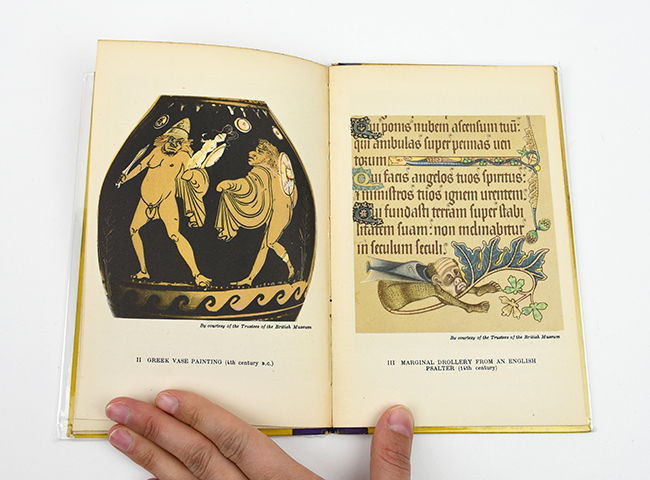 By courtesy of the Trustees of the British Museum
II GREEK VASE PAINTING (4th century B.C.)
Qui ponis nubem ascensum tuū:
qui ambulas super pennas uen
torum
Qui facis angelos tuos spiritus:
⁊ ministros tuos ignem urentem
Qui fundasti terram super stabi
litatem suam: non inclinabitur
in seculum seculi.
By courtesy of the Trustees of the British Museum
III MARGINAL DROLLERY FROM AN ENGLISH
PSALTER (14th century)